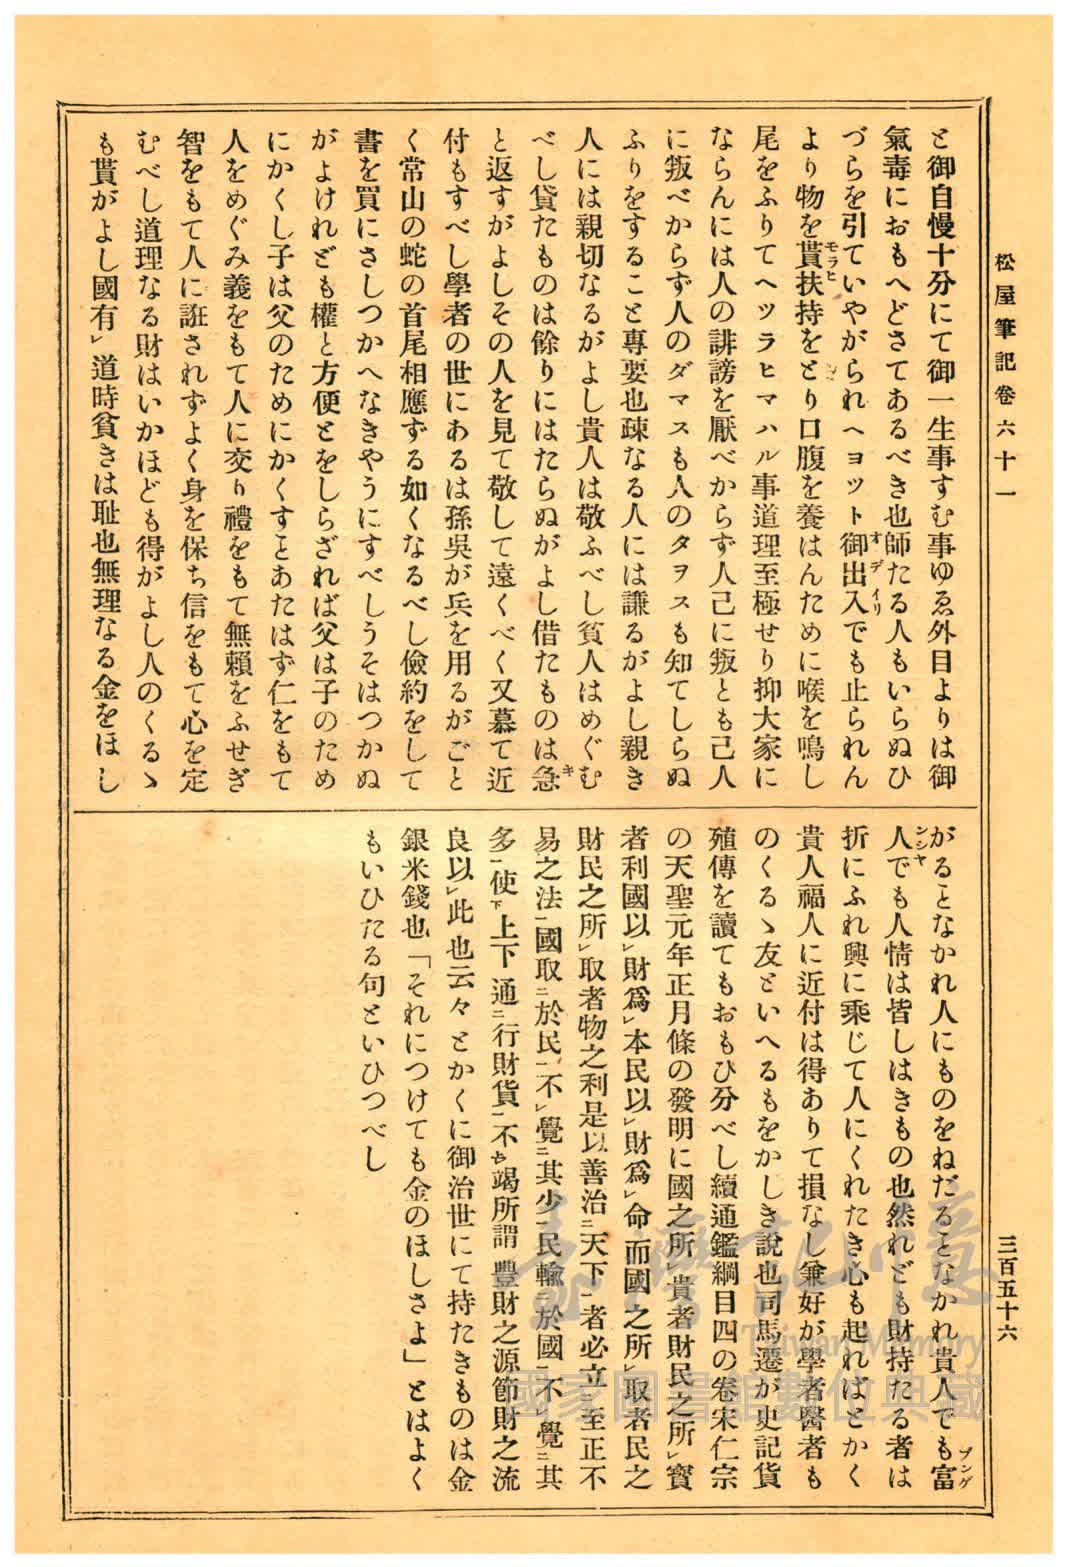 松屋筆記卷六十一
三百五十六
と御自慢十分にて御一生事すむ事ゆゑ外目よりは御
氣毒におもへどさてあるべき也師たる人もいらぬひ
づらを引ていやがられヘヨット御出入でも止られん
オデイリ
より物を貰扶持をとり口腹を養はんために喉を鳴し
モラヒ
尾をふりてヘツラヒマハル事道理至極せり抑大家に
ならんには人の誹謗を厭べからず人己に叛とも己人
に叛べからず人のダマスも人のタヲスも知てしらぬ
ふりをすること專要也疎なる人には謙るがよし親き
人には親切なるがよし貴人は敬ふべし貧人はめぐむ
べし貸たものは餘りにはたらぬがよし借たものは急
キ
と返すがよしその人を見て敬して遠くべく又慕て近
付もすべし學者の世にあるは孫吳が兵を用るがごと
く常山の蛇の首尾相應ずる如くなるべし儉約をして
書を買にさしつかへなきやうにすべしうそはつかぬ
がよけれども權と方便とをしらざれば父は子のため
にかくし子は父のためにかくすことあたはず仁をもて
人をめぐみ義をもて人に交り禮をもて無賴をふせぎ
智をもて人に誑されずよく身を保ち信をもて心を定
むべし道理なる財はいかほども得がよし人のくるゝ
も貰がよし國有レ道時貧きは耻也無理なる金をほし
がるとなかれ人にものをねだるとなかれ貴人でも富
ブンゲ
人でも人情は皆しはきもの也然れども財持たる者は
ンシヤ
折にふれ興に乘じて人にくれたき心も起ればとかく
貴人福人に近付は得ありて損なし兼好が學者醫者も
のくるゝ友といへるもをかしき說也司馬遷が史記貨
殖傳を讀てもおもひ分べし續通鑑綱目四の卷宋仁宗
の天聖元年正月條の發明に國之所レ貴者財民之所レ寶
者利國以レ財爲レ本民以レ財爲レ命而國之所レ取者民之
財民之所レ取者物之利是以善治二天下一者必立二至正不
易之法一國取二於民一不レ覺二其少一民輸二於國一不レ覺二其
多一使下上下通二行財貨一不上竭所謂豐財之源節財之流
良以レ此也云々とかくに御治世にて持たきものは金
銀米錢也「それにつけても金のほしさよ」とはよく
もいひたる句といひつべし
臺灣記憶
Taiwan Memory
國家圖書館數位典藏